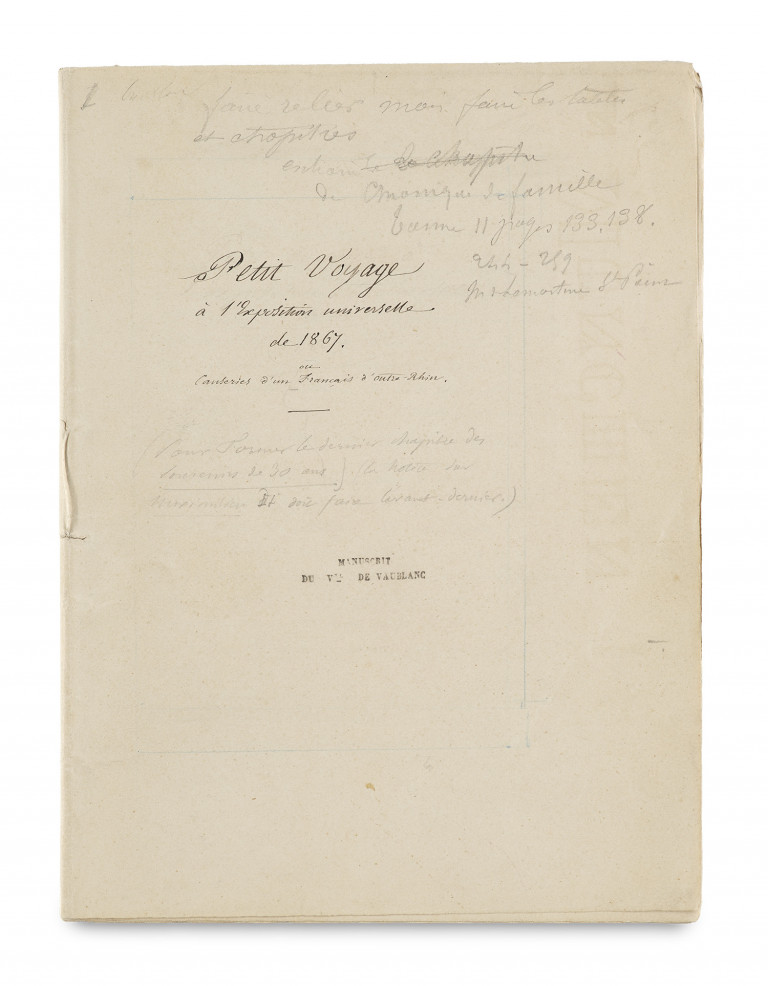 faire relier mais faire les tables
et chapitres
de chapitre
de Chronique de famille
Tome 11 pages 133, 138.
244 - 259
Petit Voyage
à l'Exposition universelle
de 1867.
ou
Causeries d'un Français d'outre-Rhin.
(Pour former le dernier chapitre des
souvenirs de 30 ans.) (la notice sur
Maximilien II doit faire l'avant-dernier.)
MANUSCRIT
DU Vte DE VAUBLANC